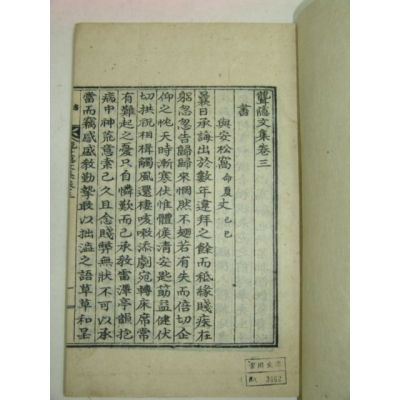 聾隱文集卷三
書
與安松窩命夏丈己巳
曩日承誨出於數年違拜之餘而秪緣賤疾在
躬忽忽告歸歸來惘然不翅若有失而倍切企
仰之忱天時漸寒伏惟體候淸安匙筯益健伏
切拱祝相楫觸風還棲咳嗽添劇宛轉床席常
有難起之憂只自憐歎而已承敎雷潭亭韻抱
病中神荒意索已久且念賤弊無狀不可以承
當而竊感盛敎勤摯敢以拙澁之語草草和呈
3462